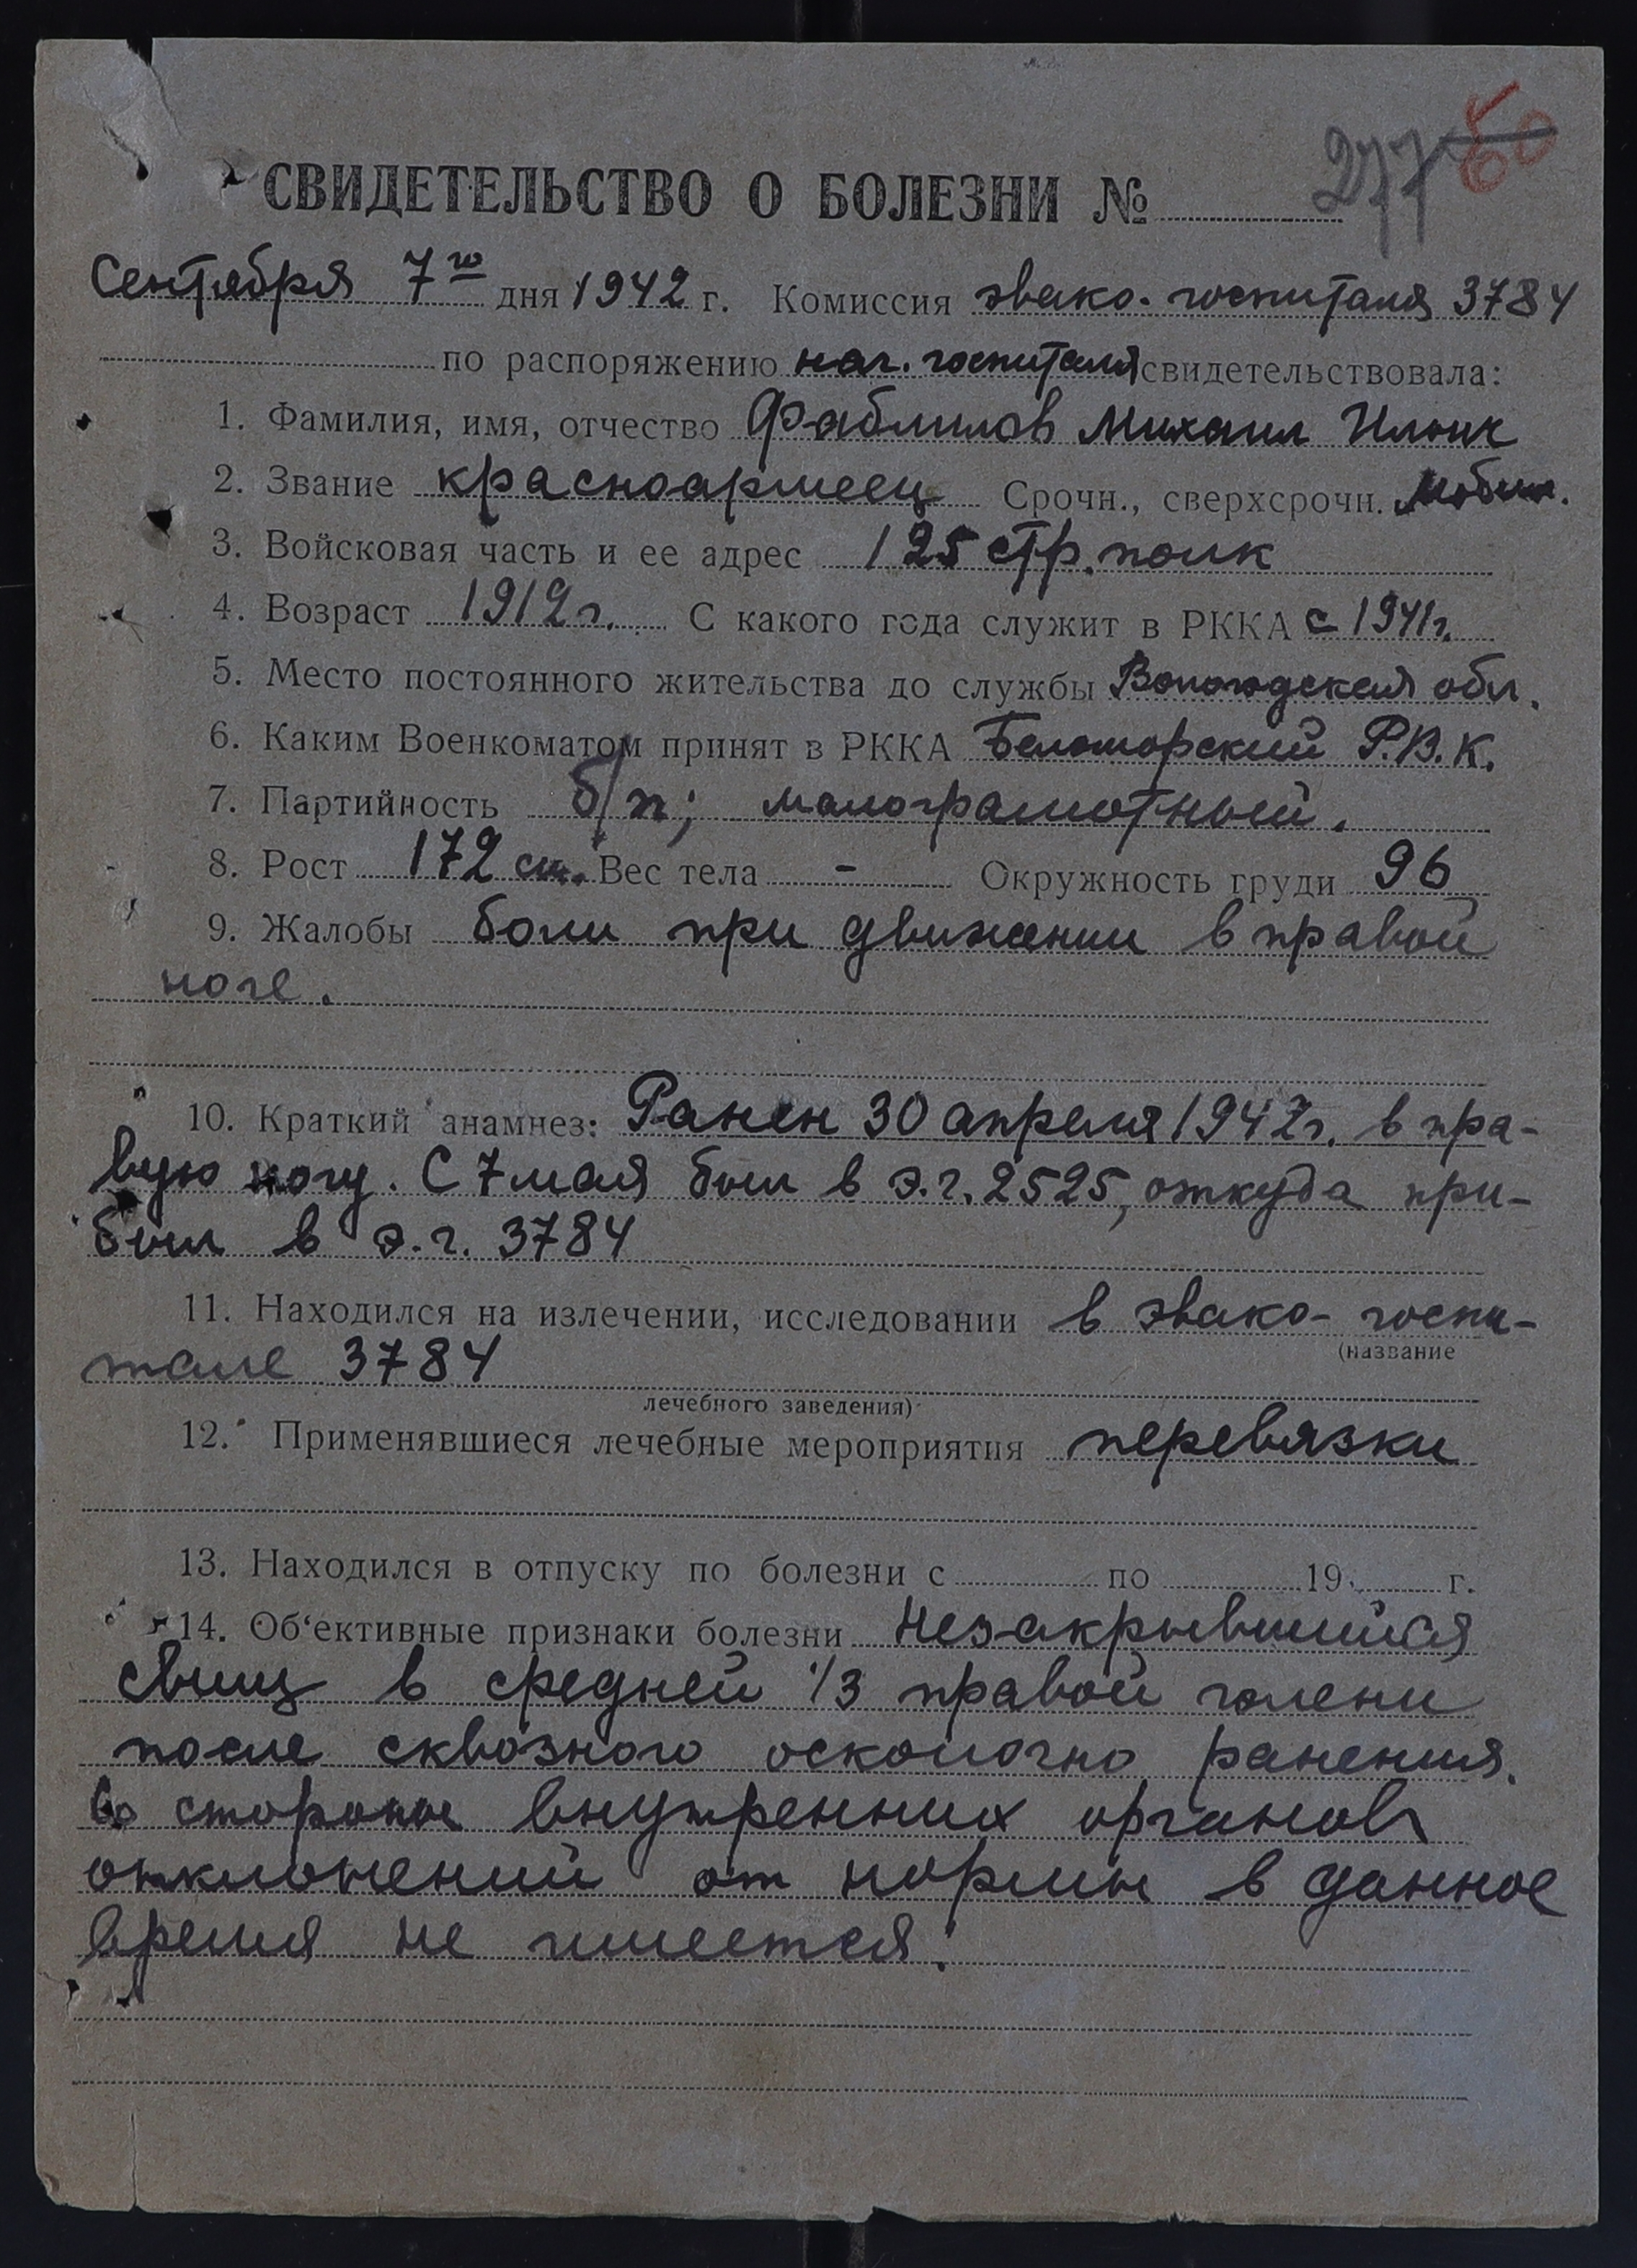 277 60
СВИДЕТЕЛЬСТВО О БОЛЕЗНИ №
Сентября 7го дня 1942 г. Комиссия эвако-госпиталя 3784
по распоряжению нач. госпиталя свидетельствовала:
1. Фамилия, имя, отчество Фаблилов Михаил Ильич
2. Звание красноармеец Срочн., сверхсрочн. мобил.
3. Войсковая часть и ее адрес 125 стр. полк
4. Возраст 1912 г. С какого года служит в РККА с 1941 г.
5. Место постоянного жительства до службы Вологодская обл.
6. Каким Военкоматом принят в РККА Беломорский Р.В.К.
7. Партийность б/п; малограмотный.
8. Рост 172 см. Вес тела - Окружность груди 96
9. Жалобы боли при движении в правой
ноге.
10. Краткий анамнез: Ранен 30 апреля 1942 г. в пра-
вую ногу. С 7 мая был в э.г. 2525, откуда при-
был в э.г. 3784
11. Находился на излечении, исследовании в эвако-госпи-
(название
тале 3784
лечебного заведения)
12. Применявшиеся лечебные мероприятия перевязки
13. Находился в отпуску по болезни с по 19 г.
14. Об'ективные признаки болезни Незакрывшийся
свищ в средней 1/3 правой голени
после сквозного осколочно ранения.
Со стороны внутренних органов
отклонений от нормы в данное
время не имеется.